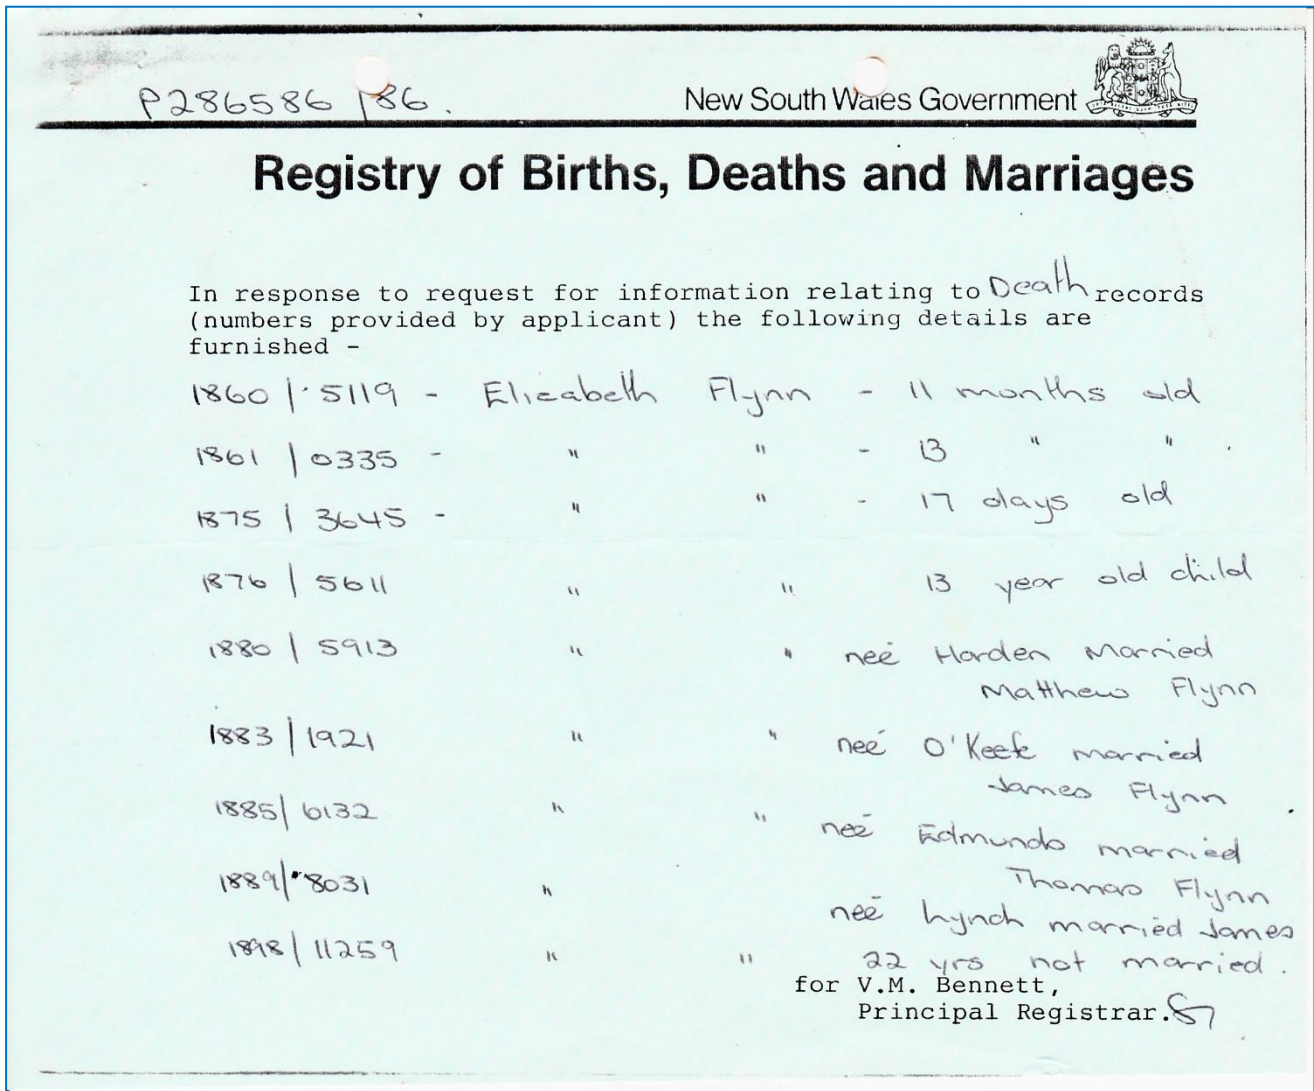 P286586/86.
New South Wales Government
Registry of Births, Deaths and Marriages
In response to request for information relating to Death records
(numbers provided by applicant) the following details are
furnished -
1860 | 5119 - Elizabeth Flynn - 11 months old
1861 | 0335 - " " - 13 " " .
1875 | 3645 - " " - 17 days old
1876 | 5611 " " 13 year old child
1880 | 5913 " " neé Harden Married
Matthew Flynn
1883 | 1921 " " neé O'Keefe married
James Flynn
1885 | 6132 " " neé Edmunds married
Thomas Flynn
1889 | 8031 " neé Lynch married James
1898 | 11259 " " 22 yrs not married.
for V.M. Bennett,
Principal Registrar.